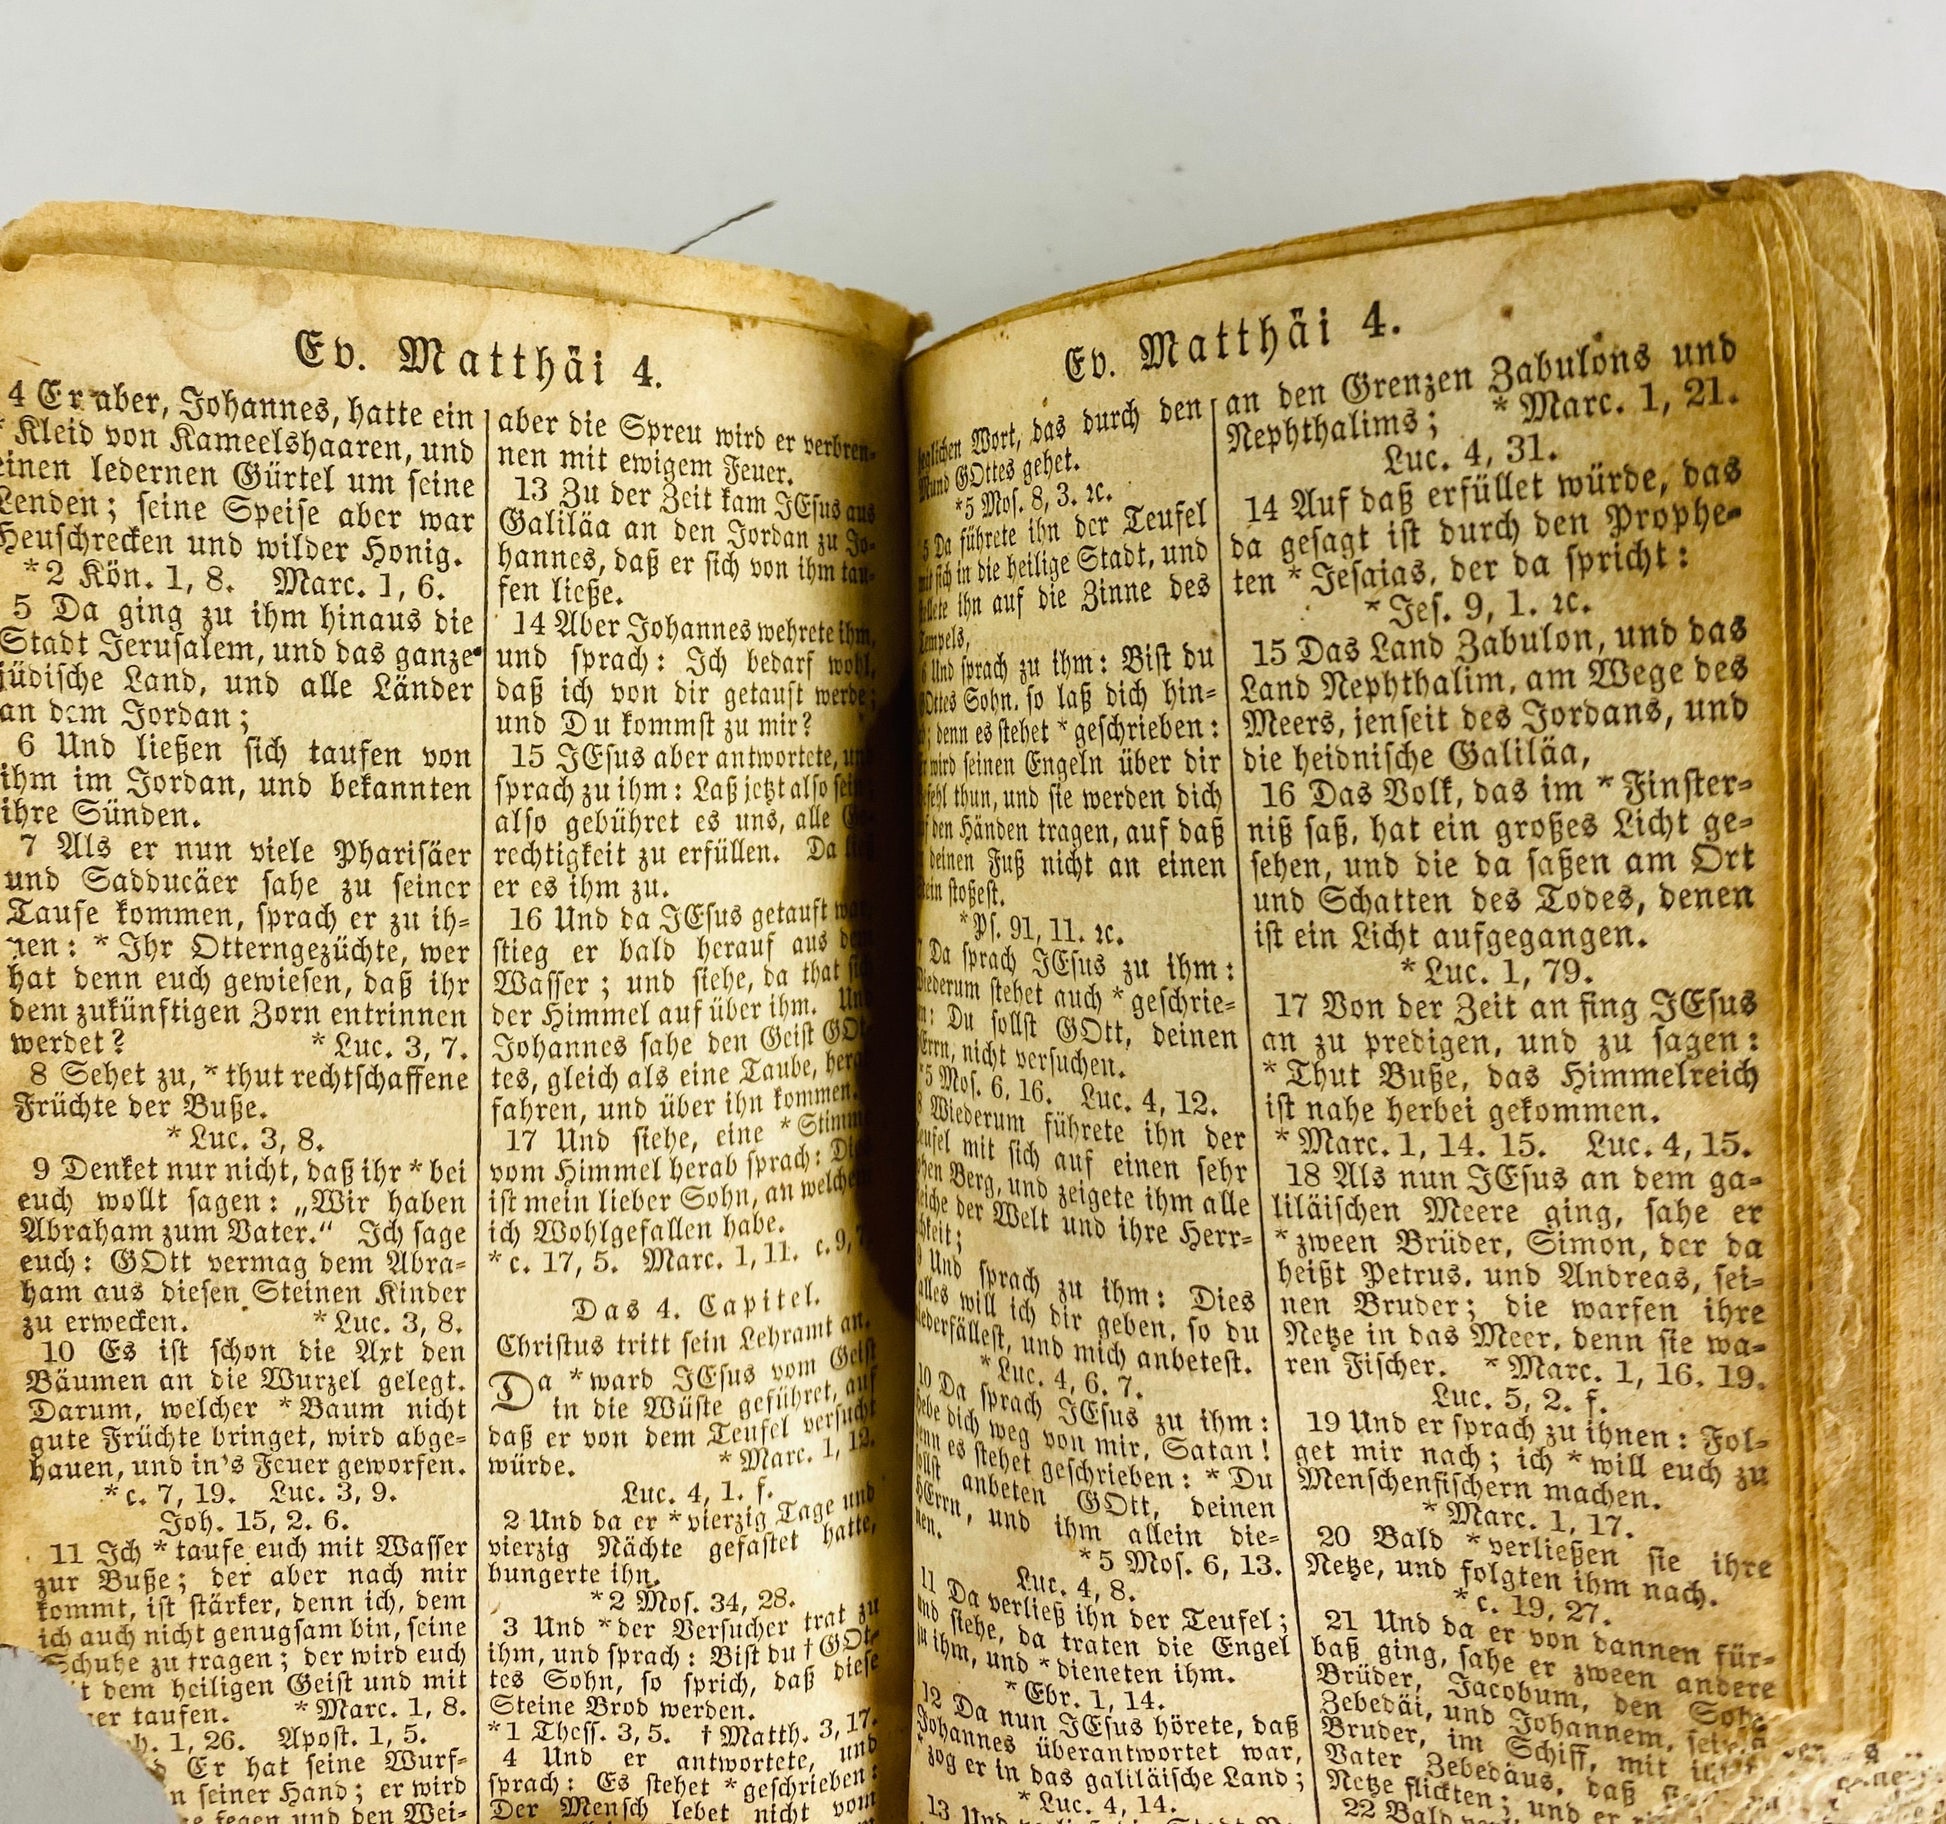 Ev. Matthäi 4.
4 Er aber, Johannes, hatte ein
* Kleid von Kameelshaaren, und
einen ledernen Gürtel um seine
Lenden; seine Speise aber war
Heuschrecken und wilder Honig.
*2 Kön. 1, 8. Marc. 1, 6.
5 Da ging zu ihm hinaus die
Stadt Jerusalem, und das ganze
jüdische Land, und alle Länder
an dem Jordan;
6 Und ließen sich taufen von
ihm im Jordan, und bekannten
ihre Sünden.
7 Als er nun viele Pharisäer
und Sadducäer sahe zu seiner
Taufe kommen, sprach er zu ih-
nen: * Ihr Otterngezüchte, wer
hat denn euch gewiesen, daß ihr
dem zukünftigen Zorn entrinnen
werdet? * Luc. 3, 7.
8 Sehet zu, * thut rechtschaffene
Früchte der Buße.
* Luc. 3, 8.
9 Denket nur nicht, daß ihr * bei
euch wollt sagen: „Wir haben
Abraham zum Vater.“ Ich sage
euch: GOtt vermag dem Abra-
ham aus diesen Steinen Kinder
zu erwecken. * Luc. 3, 8.
10 Es ist schon die Axt den
Bäumen an die Wurzel gelegt.
Darum, welcher * Baum nicht
gute Früchte bringet, wird abge-
hauen, und in's Feuer geworfen.
* c. 7, 19. Luc. 3, 9.
Joh. 15, 2. 6.
11 Ich * taufe euch mit Wasser
zur Buße; der aber nach mir
kommt, ist stärker, denn ich, dem
ich auch nicht genugsam bin, seine
Schuhe zu tragen; der wird euch
dem heiligen Geist und mit
taufen. * Marc. 1, 8.
1, 26. Apost. 1, 5.
Er hat seine Wurf-
seiner Hand; er wird
fegen und den Wei-
aber die Spreu wird er verbren-
nen mit ewigem Feuer.
13 Zu der Zeit kam JEsus aus
Galiläa an den Jordan zu Jo-
hannes, daß er sich von ihm tau-
fen ließe.
14 Aber Johannes wehrete ihm,
und sprach: Ich bedarf wohl,
daß ich von dir getauft werde;
und Du kommst zu mir?
15 JEsus aber antwortete, und
sprach zu ihm: Laß jetzt also sein;
also gebühret es uns, alle Ge-
rechtigkeit zu erfüllen. Da ließ
er es ihm zu.
16 Und da JEsus getauft war
stieg er bald herauf aus dem
Wasser; und siehe, da that sich
der Himmel auf über ihm. Und
Johannes sahe den Geist GOt-
tes, gleich als eine Taube, herab
fahren, und über ihn kommen.
17 Und siehe, eine * Stimme
vom Himmel herab sprach: Dies
ist mein lieber Sohn, an welchem
ich Wohlgefallen habe.
* c. 17, 5. Marc. 1, 11. c. 9, 7
Das 4. Capitel.
Christus tritt sein Lehramt an.
Da * ward JEsus vom Geist
in die Wüste geführet, auf
daß er von dem Teufel versucht
würde. * Marc. 1, 12.
Luc. 4, 1. f.
2 Und da er * vierzig Tage und
vierzig Nächte gefastet hatte,
hungerte ihn.
* 2 Mos. 34, 28.
3 Und * der Versucher trat zu
ihm, und sprach: Bist du † GOt-
tes Sohn, so sprich, daß diese
Steine Brod werden.
* 1 Thess. 3, 5. † Matth. 3, 17.
4 Und er antwortete, und
sprach: Es stehet * geschrieben:
Der Mensch lebet nicht vom
Ev. Matthäi 4.
jeglichen Wort, das durch den
Mund GOttes gehet.
* 5 Mos. 8, 3. ꝛc.
5 Da führete ihn der Teufel
mit sich in die heilige Stadt, und
stellete ihn auf die Zinne des
Tempels,
6 Und sprach zu ihm: Bist du
GOttes Sohn, so laß dich hin-
denn es stehet * geschrieben:
Er wird seinen Engeln über dir
Befehl thun, und sie werden dich
auf den Händen tragen, auf daß
deinen Fuß nicht an einen
Stein stoßest.
* Ps. 91, 11. ꝛc.
7 Da sprach JEsus zu ihm:
Wiederum stehet auch * geschrie-
Du sollst GOtt, deinen
HErrn, nicht versuchen.
* 5 Mos. 6, 16. Luc. 4, 12.
8 Wiederum führete ihn der
Teufel mit sich auf einen sehr
hohen Berg, und zeigete ihm alle
Reiche der Welt und ihre Herr-
lichkeit;
9 Und sprach zu ihm: Dies
alles will ich dir geben, so du
niederfällest, und mich anbetest.
* Luc. 4, 6. 7.
10 Da sprach JEsus zu ihm:
Hebe dich weg von mir, Satan!
denn es stehet geschrieben: * Du
sollst anbeten GOtt, deinen
HErrn, und ihm allein die-
nen. * 5 Mos. 6, 13.
Luc. 4, 8.
11 Da verließ ihn der Teufel;
und siehe, da traten die Engel
zu ihm, und * dieneten ihm.
* Ebr. 1, 14.
12 Da nun JEsus hörete, daß
Johannes überantwortet war,
zog er in das galiläische Land;
* Luc. 4, 14.
13 Und
an den Grenzen Zabulons und
Nephthalims; * Marc. 1, 21.
Luc. 4, 31.
14 Auf daß erfüllet würde, das
da gesagt ist durch den Prophe-
ten * Jesaias, der da spricht:
* Jes. 9, 1. ꝛc.
15 Das Land Zabulon, und das
Land Nephthalim, am Wege des
Meers, jenseit des Jordans, und
die heidnische Galiläa,
16 Das Volk, das im * Finster-
niß saß, hat ein großes Licht ge-
sehen, und die da saßen am Ort
und Schatten des Todes, denen
ist ein Licht aufgegangen.
* Luc. 1, 79.
17 Von der Zeit an fing JEsus
an zu predigen, und zu sagen:
* Thut Buße, das Himmelreich
ist nahe herbei gekommen.
* Marc. 1, 14. 15. Luc. 4, 15.
18 Als nun JEsus an dem ga-
liläischen Meere ging, sahe er
* zween Brüder, Simon, der da
heißt Petrus, und Andreas, sei-
nen Bruder; die warfen ihre
Netze in das Meer, denn sie wa-
ren Fischer. * Marc. 1, 16. 19.
Luc. 5, 2. f.
19 Und er sprach zu ihnen: Fol-
get mir nach; ich * will euch zu
Menschenfischern machen.
* Marc. 1, 17.
20 Bald * verließen sie ihre
Netze, und folgten ihm nach.
* c. 19, 27.
21 Und da er von dannen für-
baß ging, sahe er zween andere
Brüder, Jacobum, den Sohn
Zebedäi, und Johannem, seinen
Bruder, im Schiff, mit ihrem
Vater Zebedäus, daß sie
Netze flickten; und er
22 Bald